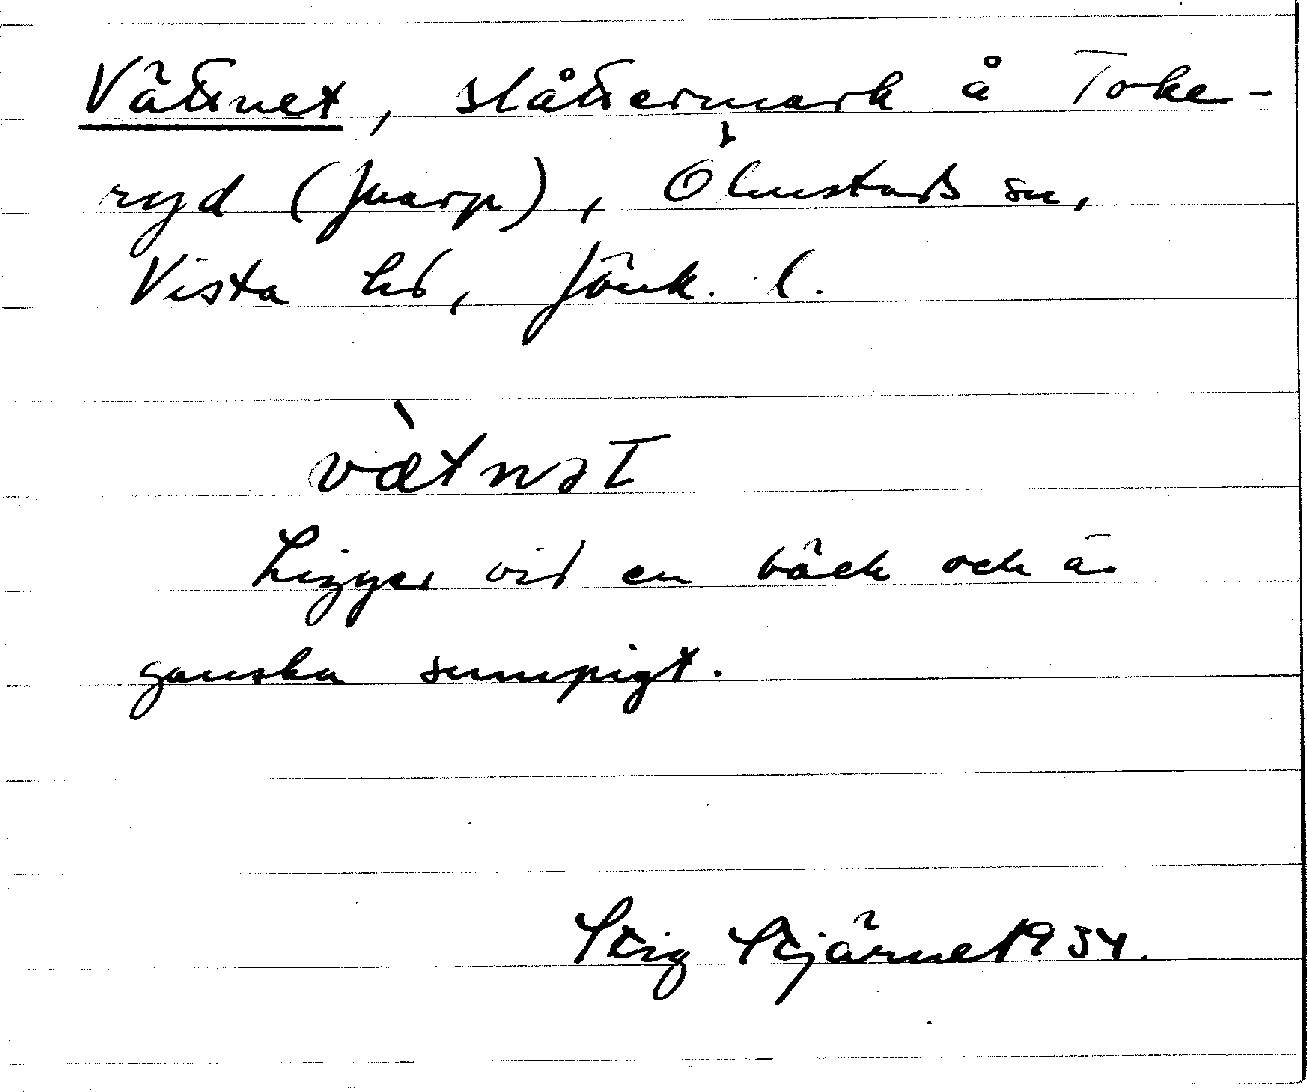 Vättnet, slåttermark å Toke-
ryd (Juarp), Ölmstads sn,
Vista hd, Jönk. l.
vàtnət
Ligger vid en bäck och är
ganska sumpigt.
Stig Stjärne 1934.